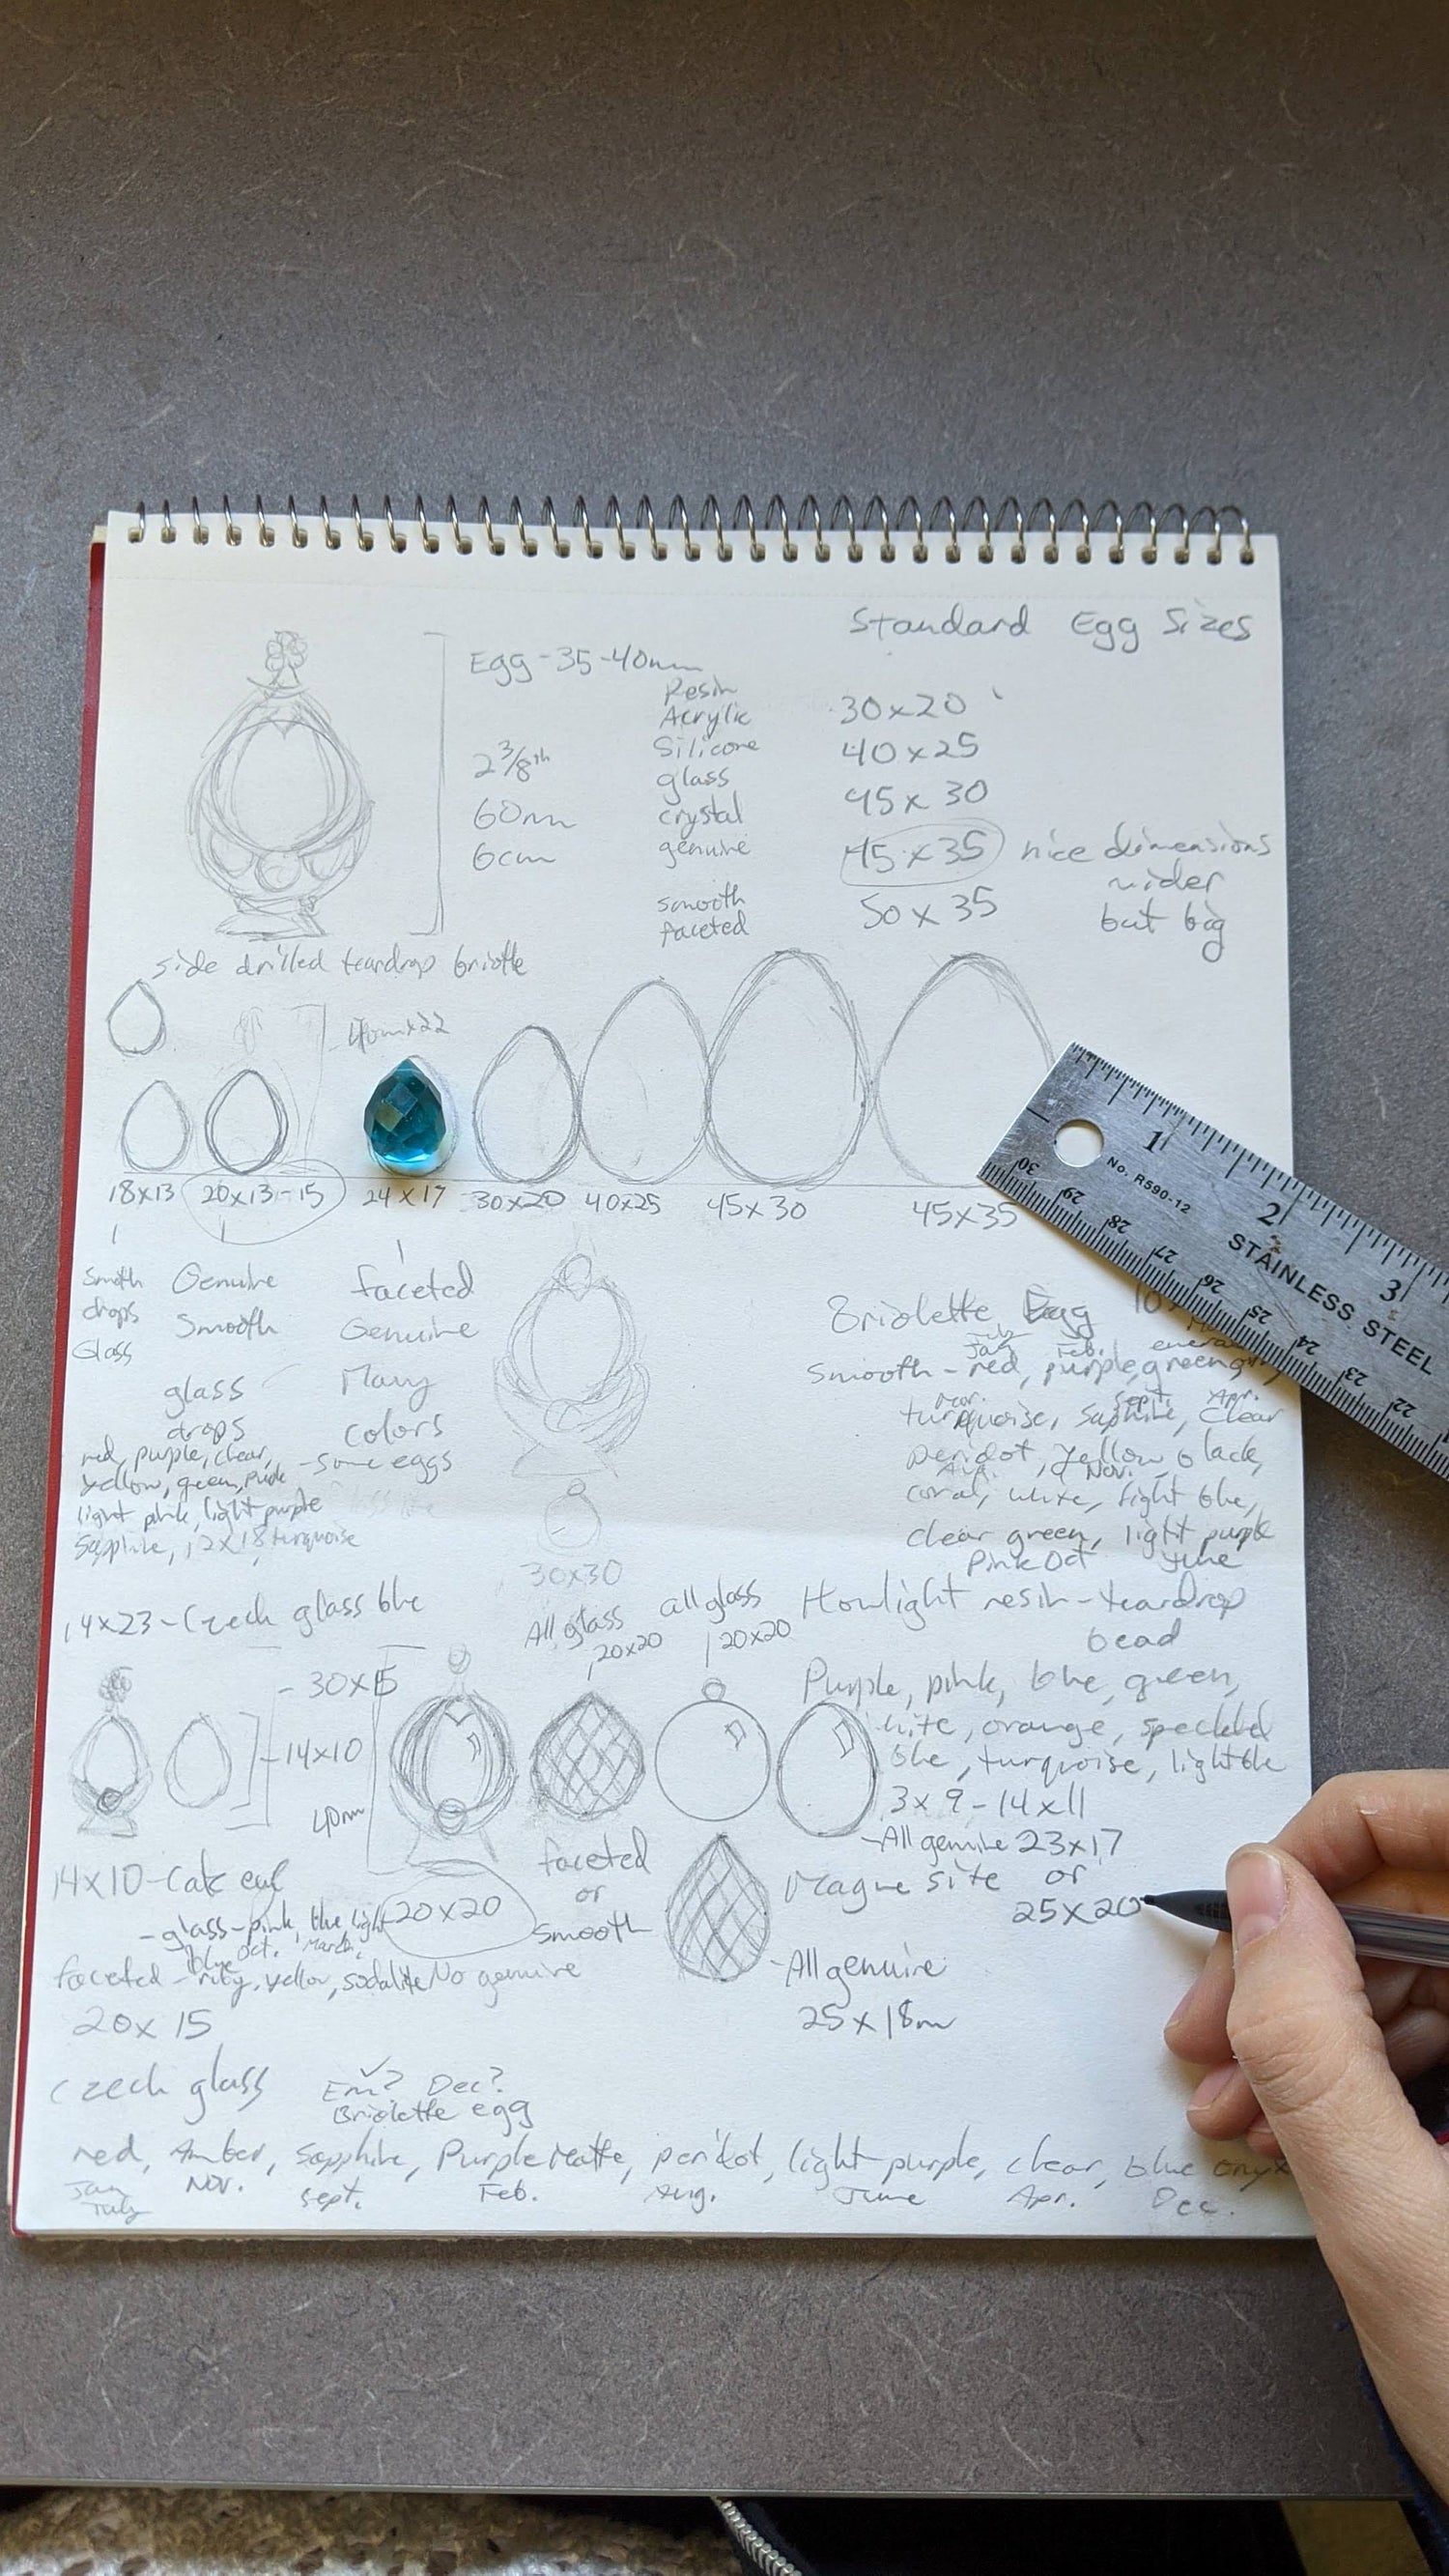 Standard Egg Sizes
Egg - 35 - 40mm
Resin
Acrylic
Silicone
glass
crystal
genuine
smooth
faceted
2 3/8th
60mm
6cm
30x20
40x25
45x30
45x35 nice dimensions
wider
but big
50x35
side drilled teardrop
18x13 20x13-15 24x17 30x20 40x25 45x30 45x35
Smoth
drops
Glass
Genuine
Smooth
glass
drops
red, purple, clear,
yellow, green,
light pink, light purple
Sapphire, 12x18 turquoise
faceted
Genuine
Many
colors
- some eggs
30x30
Briolette Egg
July
Jan. Feb.
Smooth - red, purple, green,
Mar. Sept. Apr.
turquoise, Saphire, clear
peridot, yellow, black,
Aug. Nov.
coral, white, light blue,
clear green, light purple
Pink Oct June
14x23 - Czech glass blue
All glass
20x20
all glass
20x20
Howlight resin - teardrop
bead
Purple, pink, blue, green,
orange, speckled
blue, turquoise, light blue
3x9 - 14x11
- All genuine 23x17
Magnesite or
25x20
- 30x15
- 14x10
40mm
20x20
faceted
or
smooth
- All genuine
25x18m
14x10 - Cats eye
- glass - pink, blue, light
blue Oct. March,
faceted - ruby, yellow, sodalite No genuine
20x15
Czech glass
Em? Dec?
Briolette egg
red, Amber, Sapphire, Purple Matte, peridot, light purple, clear, blue onyx
Jan Nov. Sept. Feb. Aug. June Apr. Dec.
July
1 2 3
No. R590-12
STAINLESS STEEL
30 29 28 27 26 25 24 23 22